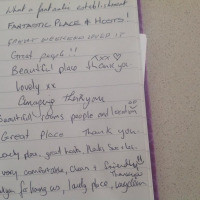 What a fantastic establishment
FANTASTIC PLACE & HOSTS!
GREAT WEEKEND
Great people!!
Beautiful place thank you
Lovely xx
Amazing thank you
Beautiful rooms, people and location
Great Place Thank you
Lovely place, good hosts
very comfortable, clean & friendly!!
Thankyou
for having us, lovely place,